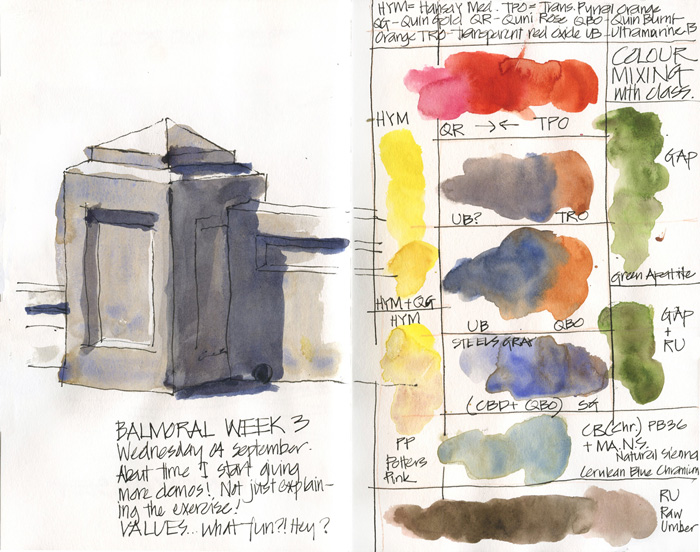 BALMORAL WEEK 3
Wednesday 04 September.
About time I start giving
more demos! Not just explain-
ing the exercise!
VALUES... What fun?! Hey?
HYM = Hansay Med. TPO = Trans. Pyrrol Orange
QG - Quin Gold QR - Quni Rose QBO - Quin Burnt
Orange TRO - Transparent red oxide UB - Ultramarine B
COLOUR
MIXING
with class.
HYM
QR → ← TPO
GAP
UB? TRO
Green Apatite
HYM + QG
HYM
UB QBO
GAP
+
RU
STEELS GRAY
(CBD + QBO) SG
PP
Potters
Pink
CB (Chr.) PB36
+ M.A.N.S.
Natural Sienna
Cerulean Blue Chromium
RU
Raw
Umber